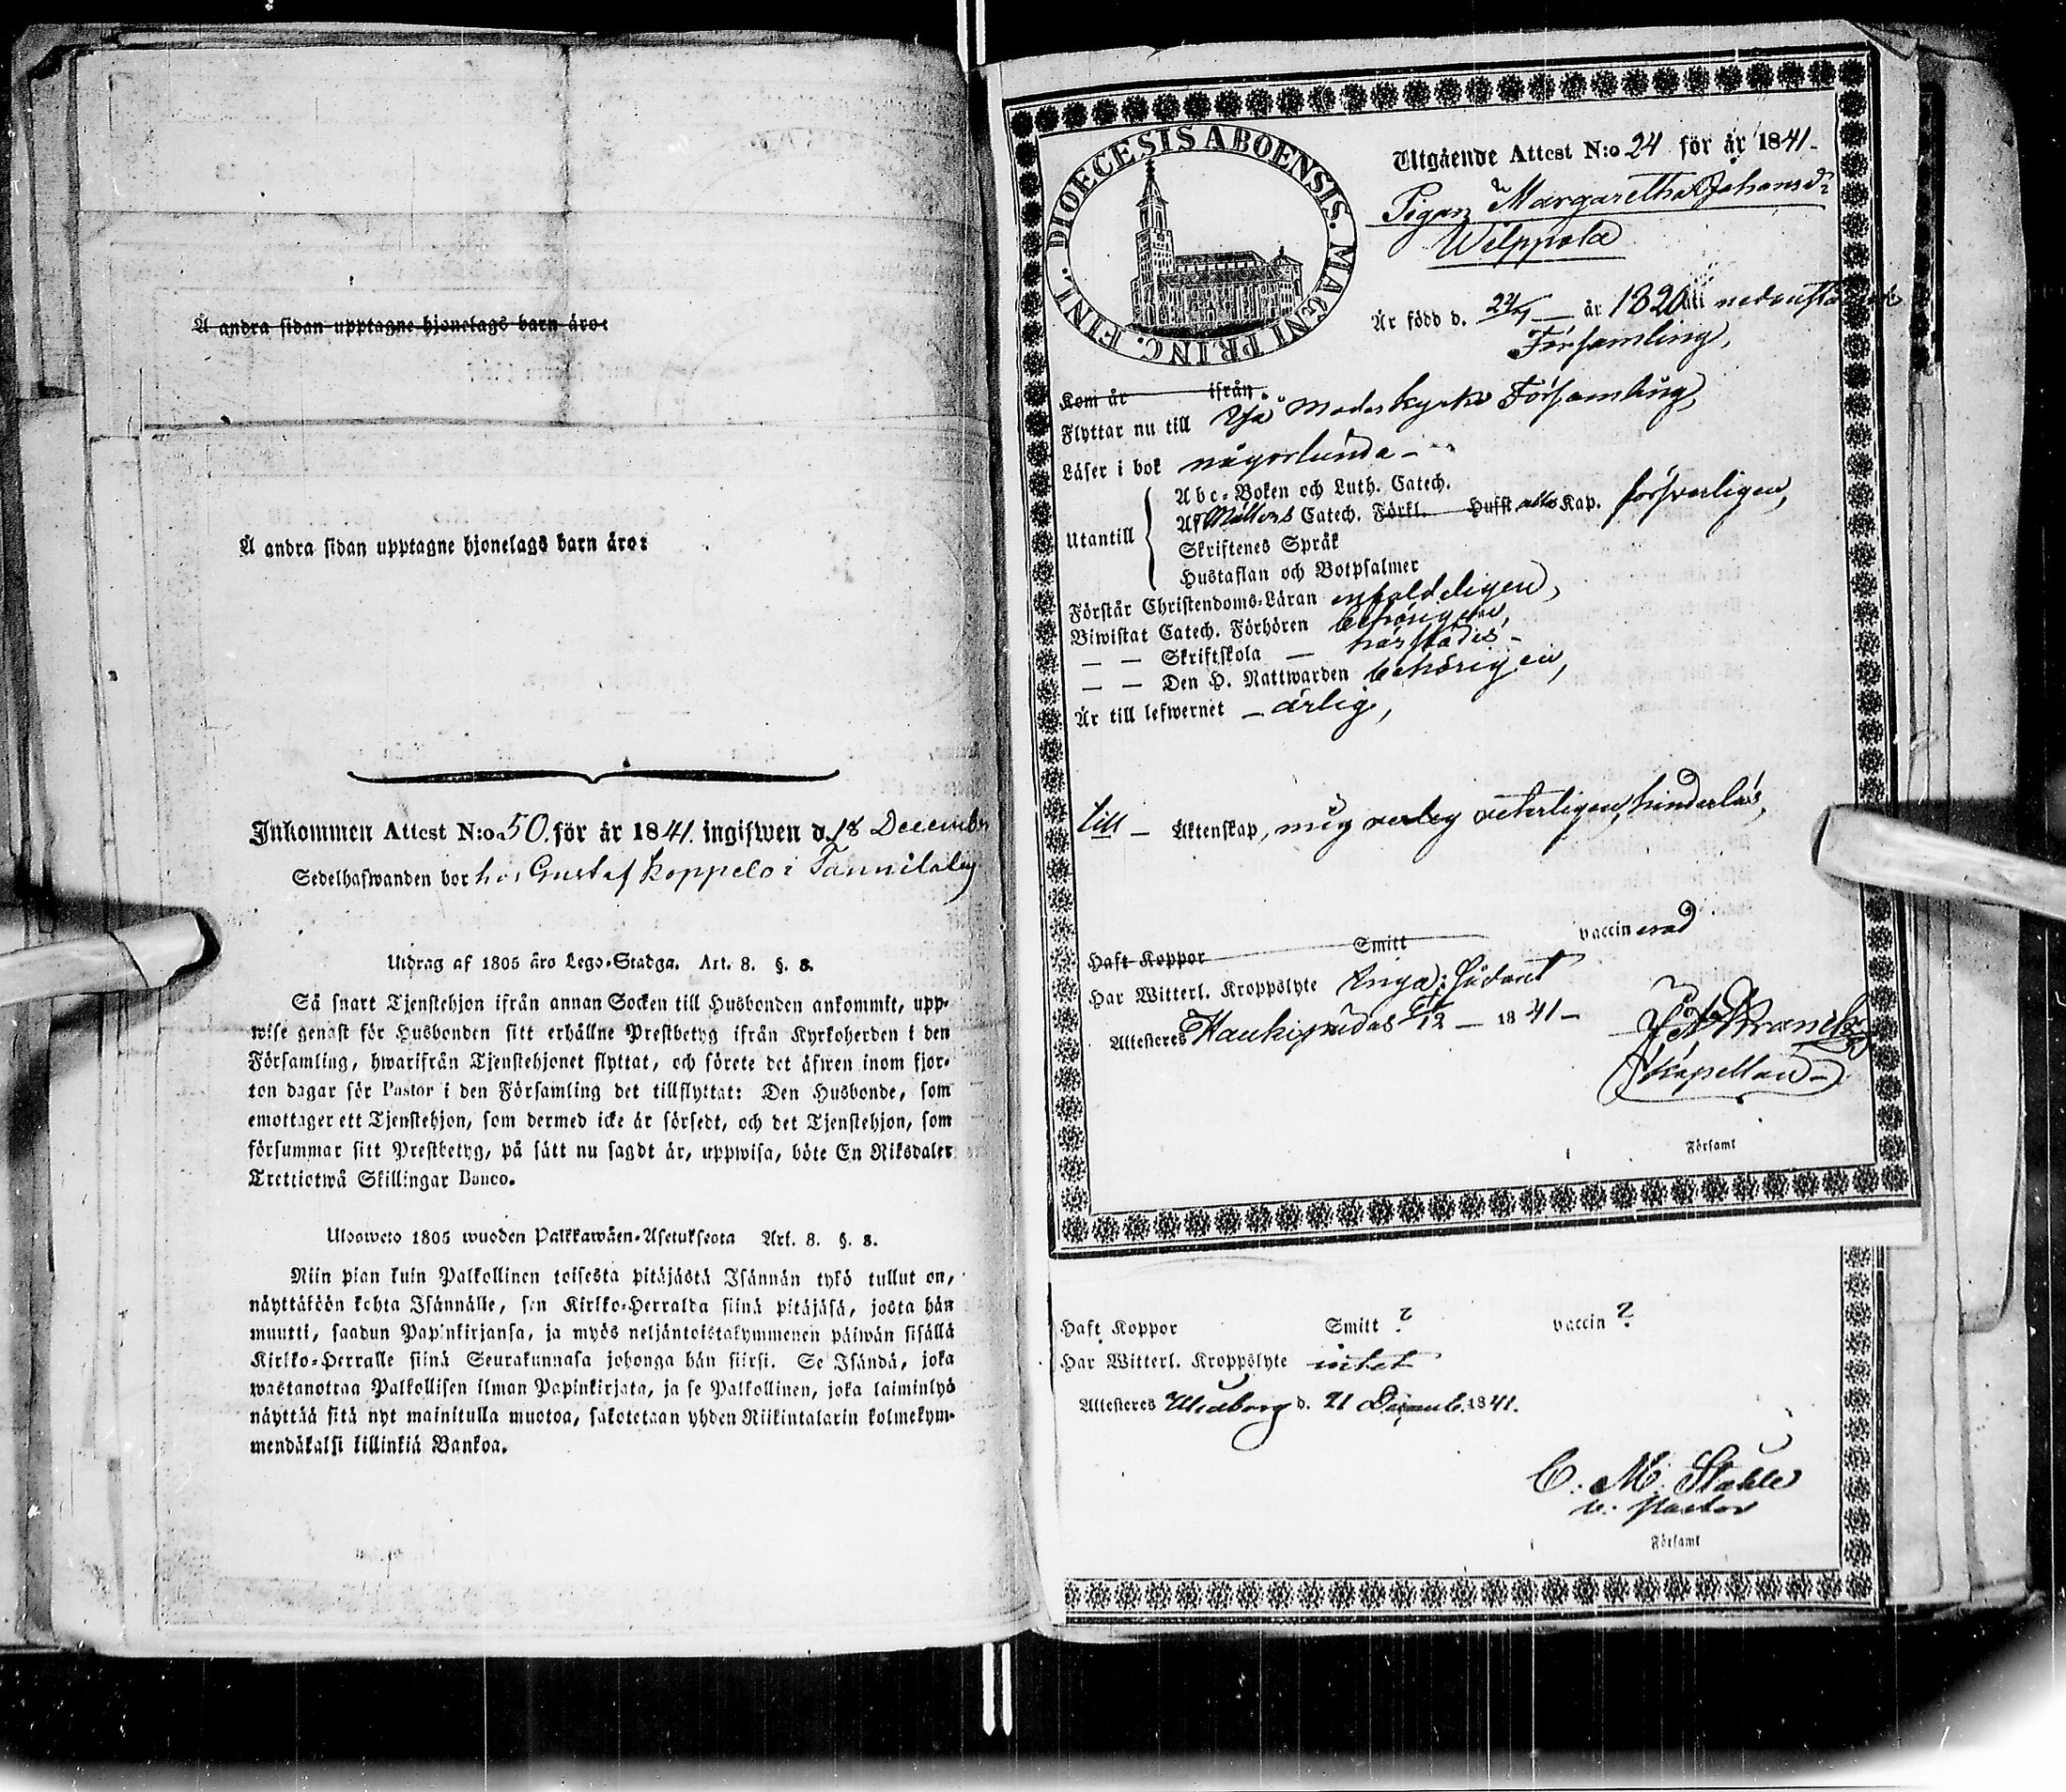 Å andra sidan upptagne hjonelags barn äro:
Å andra sidan upptagne hjonelags barn äro:
Inkommen Attest N:o 50. för år 1841. ingifwen d. 18 December
Sedelhafwanden bor hos Gustaf Koppelo i Tannilaby
Utdrag af 1805 års Lego-Stadga. Art. 8. §. 8.
Så snart Tjenstehjon ifrån annan Socken till Husbonden ankommit, upp-
wise genast för Husbonden sitt erhållne Prestbetyg ifrån Kyrkoherden i den
Församling, hwarifrån Tjenstehjonet flyttat, och förete det äfwen inom fjor-
ton dagar för Pastor i den Församling det tillflyttat: Den Husbonde, som
emottager ett Tjenstehjon, som dermed icke är försedt, och det Tjenstehjon, som
försummar sitt Prestbetyg, på sätt nu sagdt är, uppwisa, böte En Riksdaler
Trettiotwå Skillingar Banco.
Ulosweto 1805 wuoden Palkkawäen-Asetuksesta Art. 8. §. 8.
Niin pian kuin Palkollinen toisesta pitäjästä Isännän tykö tullut on,
näyttäköön kohta Isännälle, sen Kirkko-Herralda siinä pitäjäsä, josta hän
muutti, saadun Papinkirjansa, ja myös neljäntoistakymmenen päiwän sisällä
Kirkko-Herralle siinä Seurakunnasa johonga hän siirsi. Se Isändä, joka
wastanottaa Palkollisen ilman Papinkirjata, ja se Palkollinen, joka laiminlyö
näyttää sitä nyt mainitulla muotoa, sakotetaan yhden Riikintalarin kolmekym-
mendäkaksi killinkiä Bankoa.
DIOECESIS ABOENSIS. MAGNI PRINC. FINL.
Utgående Attest N:o 24 för år 1841-
Pigan Margaretha Johansdr
Wilppola
Är född d. 24/1 — år 1820 uti nedanstående
Församling,
Kom år ifrån
Flyttar nu till Ijå Moderkyrko Församling,
Läser i bok någorlunda -
Utantill
Abc-Boken och Luth. Catech.
Af Möllers Catech. Förkl. Hufst alla Kap. försvarligen,
Skriftenes Språk
Hustaflan och Botpsalmer
Förstår Christendoms-Läran enfaldeligen,
Biwistat Catech. Förhören behörigen,
— — Skriftskola — härstädes -
— — Den H. Nattwarden behörigen,
Är till lefwernet - ärlig,
till - Äktenskap, mig veterligen, hinderlös,
Haft Koppor Smitt vaccinerad
Har Witterl. Kroppslyte inga: sådant
Attesteres Haukipudas /12 — 1841-
Kapellan
Församl
Haft Koppor Smitt ? vaccin ?
Har Witterl. Kroppslyte intet
Attesteres Uleåborg d. 21 Decemb. 1841.
C. M. Stahle
v. Pastor
Församl